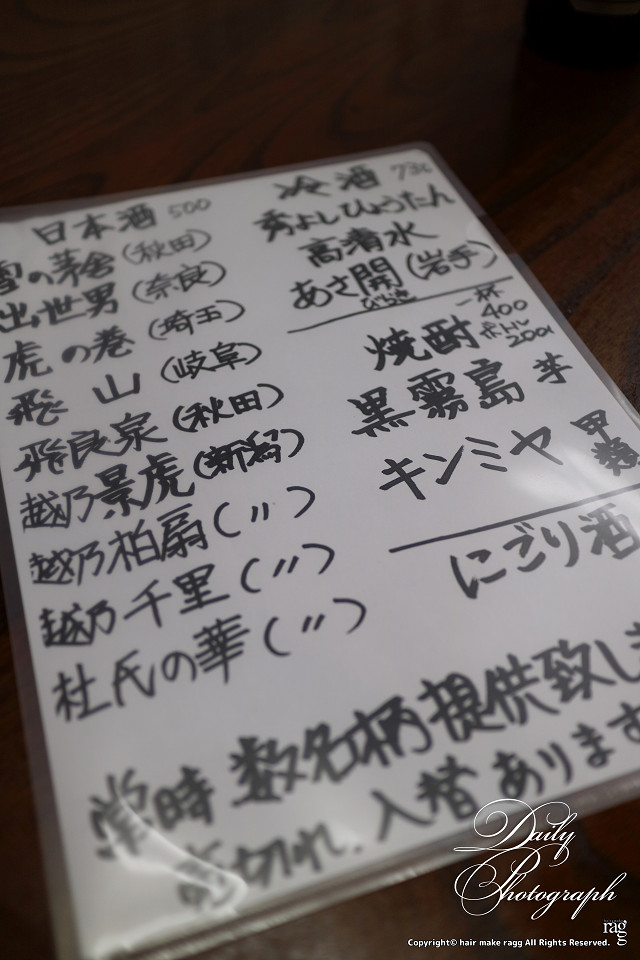 日本酒 500
雪の茅舎 (秋田)
出世男 (奈良)
虎の巻 (埼玉)
飛山 (岐阜)
飛良泉 (秋田)
越乃景虎 (新潟)
越乃柏扇 (〃)
越乃千里 (〃)
杜氏の華 (〃)
冷酒
秀よしひょうたん
高清水
あさ開 (岩手)
焼酎 一杯 400
ボトル 2000
黒霧島 芋
キンミヤ 甲類
にごり酒
常時 数名柄 提供致し
売切れ、入替あります
Daily
Photograph
ragg
Copyright© hair make ragg All Rights Reserved.